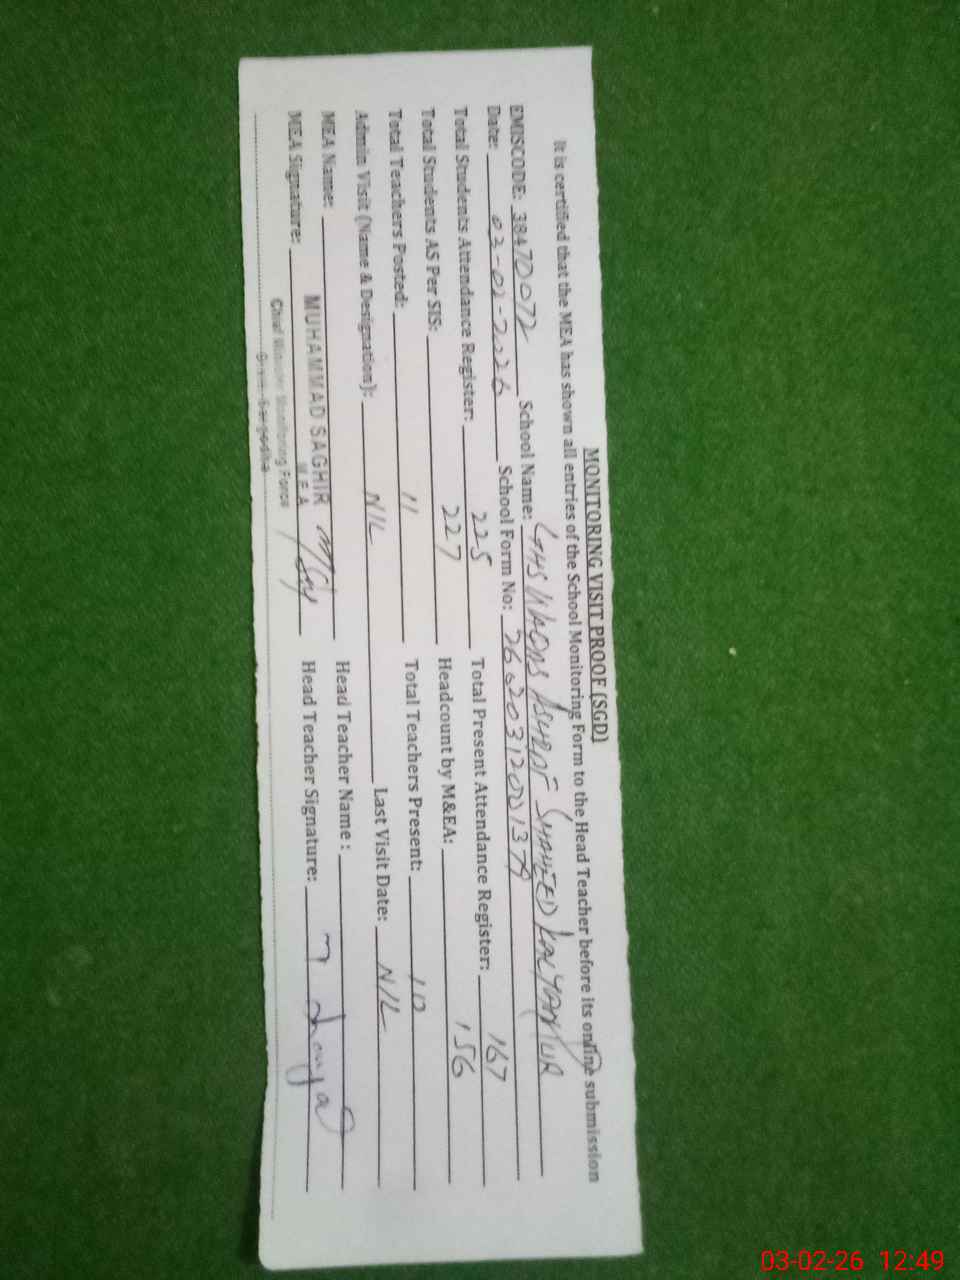 MONITORING VISIT PROOF (SGD)
It is certified that the MEA has shown all entries of the School Monitoring Form to the Head Teacher before its online submission
EMISCODE: 38470072 School Name: GHS KHADAS ASHRAF SHAHEED KALYANPUR
Date: 03-02-2026 School Form No:
Total Students Attendance Register: 225 Total Present Attendance Register: 167
Total Students AS Per SIS: 227 Headcount by M&EA: 156
Total Teachers Posted: 11 Total Teachers Present: 10
Admin Visit (Name & Designation): NIL Last Visit Date: NIL
MEA Name: MUHAMMAD SAGHIR Head Teacher Name :
M.E.A
MEA Signature: Head Teacher Signature:
Chief Minister Monitoring Force
03-02-26 12:49